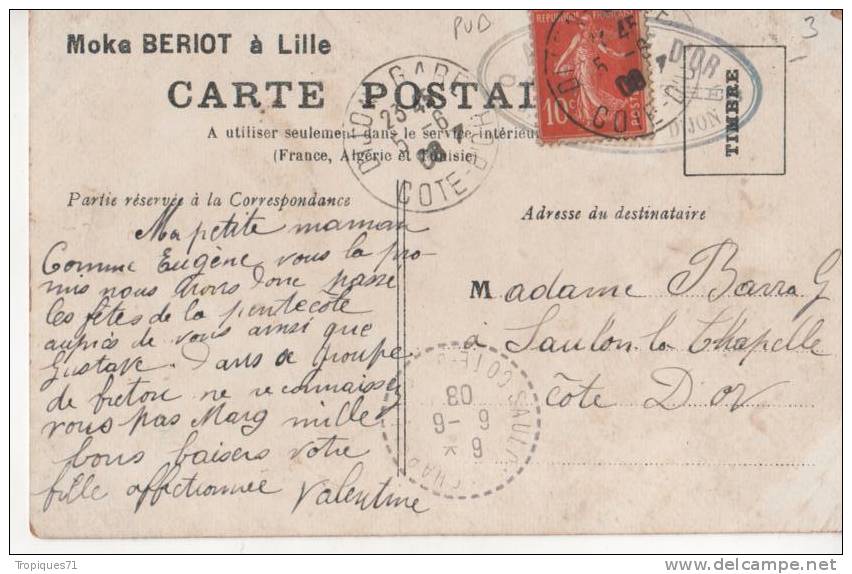 PUB
3
Moka BERIOT à Lille
CARTE POSTAL
A utiliser seulement dans le service intérieur
(France, Algérie et Tunisie)
DIJON GARE
23
5-6
08
COTE-D'OR
10c
POSTES
D'OR
DIJON
TIMBRE
Partie réservée à la Correspondance
Ma petite maman
Comme Eugène vous la pro-
mis nous irons donc passé
les fêtes de la pentecôte
auprès de vous ainsi que
Gustave. Dans ce groupe
de breton ne reconnaissez
vous pas Marg mille
bons baisers votre
fille affectionnée Valentine
Adresse du destinataire
Madame Barra G
à Saulon la Chapelle
Côte D'or
6
6-6
08
Tropiques71
delcampe.net